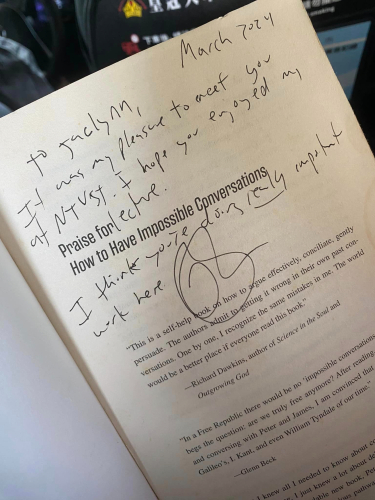 March 2024
to Jaclynn,
It was my pleasure to meet you
at NTUST. I hope you enjoyed my
lecture.
Praise for
How to Have Impossible Conversations
I think you're doing really important
work here.
"This is a self-help book on how to argue effectively, conciliate, gently
persuade. The authors admit to getting it wrong in their own past con-
versations. One by one, I recognize the same mistakes in me. The world
would be a better place if everyone read this book."
—Richard Dawkins, author of Science in the Soul and
Outgrowing God
"In a Free Republic there would be no 'impossible conversations
begs the question: are we truly free anymore? After reading
and conversing with Peter and James, I am convinced that
Galileo's, I. Kant, and even William Tyndale of our time."
—Glenn Beck
knew all I needed to know about co
I just knew a lot about
this new book, Pet